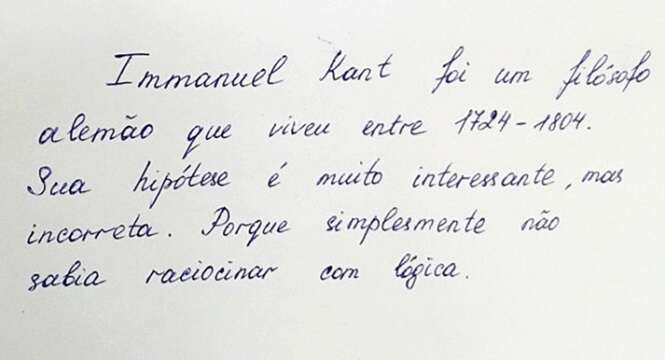 Immanuel Kant foi um filósofo
alemão que viveu entre 1724-1804.
Sua hipótese é muito interessante, mas
incorreta. Porque simplesmente não
sabia raciocinar com lógica.